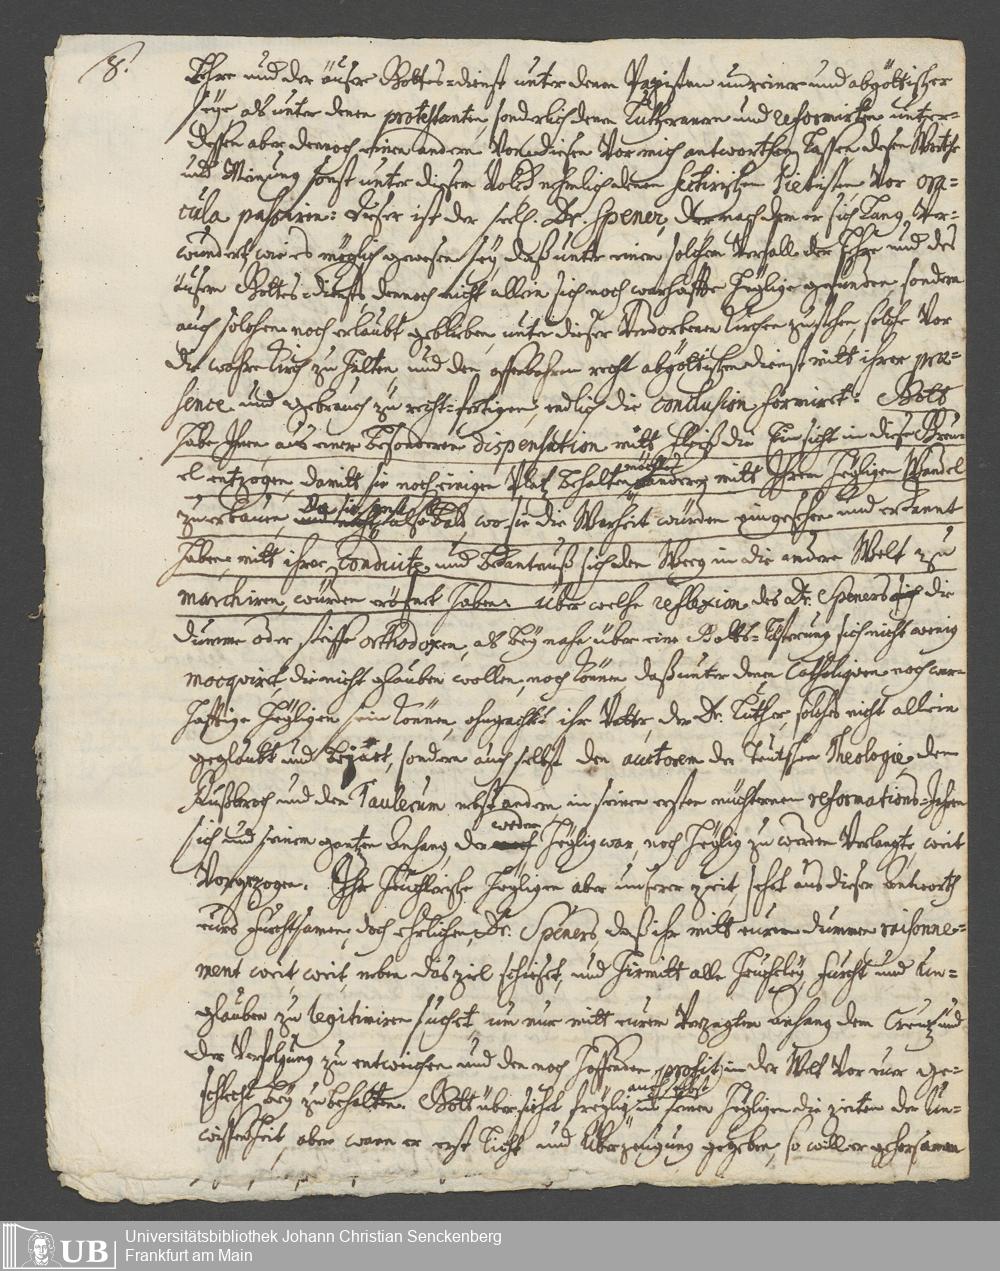 8.
Lehre und der äusre Gottes-dienst unter denen Papisten unreiner und abgöttischer
seÿe, als unter denen protestanten, sonderlich denen Lutheranern und reformirten unter-
dessen aber dennoch einen andern von diesen vor mich antworthen lassen dessen Worthe
und Meinung sonst unter diesem Volck nehmlich denen Pietisten vor ora-
cula passiren: dieser ist der seel. Dr. Spener, der nach dem er sich lang ver-
wundert wie es möglich gewesen seÿ, daß unter einem solchen Verfall der Lehre und des
äusern Gottes-diensts, dennoch nicht allein sich noch warhaffte Heÿlige gefunden sondern
auch solchen noch erlaubt geblieben, unter dieser verdorbenen Kirchen zu stehen solche vor
die wahre Kirch zu halten und den offenbahren recht abgöttischen dienst mitt ihrer præ-
sence und gebrauch zu recht-fertigen, endlich die conclusion formiret: Gott
habe Ihnen aus einer besonderen dispensation mitt fleiß die Einsicht in diese Greu-
el entzogen, damitt sie noch einigen Platz behalten möchten andere mitt Ihrem heÿligen Wandel
zu erbauen, da sie sonst also bald, wo sie die Warheit würden eingesehen und erkannt
haben, mitt ihrer conduite und Bekantnuß sich den Weeg in die andere Welt zu
marchiren, würden eröfnet haben. über welche reflexion des Dr. Speners sich die
dumme oder steiffe orthodoxen, als beÿ nahe über eine Gotts-Lästerung sich nicht wenig
mocquiret, die nicht glauben wollen, noch können daß unter denen Catholiquen noch war-
hafftige Heÿligen sein können, ohngeacht ihr Vatter, der Dr. Luther, solches nicht allein
geglaubt und bejaet, sondern auch selbst den auctorem der Teutschen Theologie, den
Rußbroch und den Taulerum nebst andern in seinen ersten nüchternen reformations-Jahren
sich und seinem gantzen Anhang, der weder heÿlig war, noch heÿlig zu werden verlangte, weit
vorgezogen. Ihr heuchlerische Heÿligen aber unserer zeit, sehet aus dieser antworth
eures furchtsamen, doch ehrlichen Dr. Speners, daß ihr mitt eurem dummen raisonne-
ment weit, weit, neben das ziel schieset, und hiermitt alle Heucheleÿ, furcht und Un-
glauben zu legitimiren suchet, um nur mitt eurem verzagten anhang dem Creutz und
der Verfolgung zu entweichen und den noch hoffenden profit in der Welt vor eur ge-
schlecht beÿ zu behalten. Gott übersiehet freÿlich auch selbst seinen Heÿligen die zeiten der Un-
wissenheit, aber wann er erst Licht und Überzeugung gegeben, so will er gehorsamen
UB
Universitätsbibliothek Johann Christian Senckenberg
Frankfurt am Main